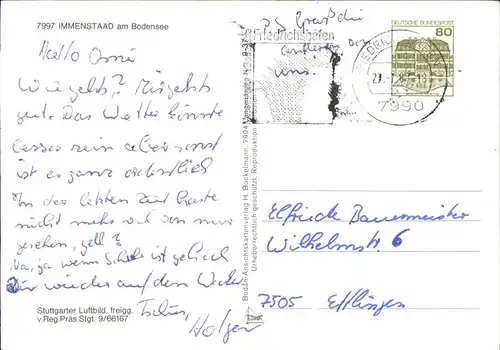 7997 IMMENSTAAD am Bodensee
Hallo Omi
Wie geht's? Mir geht's
gut. Das Wetter könnte
besser sein aber sonst
ist es ganz ordentlich
In der letzten Zeit haste
nicht mehr viel von mir
gesehen, gell?
Na, ja wenn Schule ist geh ich
dir wieder auf den Wecker
Tschüs,
Holger
Stuttgarter Luftbild, freigg.
v.Reg Präs.Stgt. 9/66167
PS Grüß die
anderen von
uns.
Friedrichshafen
7990
DEUTSCHE BUNDESPOST
80
Bodan-Ansichtskartenverlag H. Bockelmann, 7994
Urheberrechtlich geschützt. Reproduktion
Elfriede Bauermeister
Wilhelmstr. 6
7505 Ettlingen